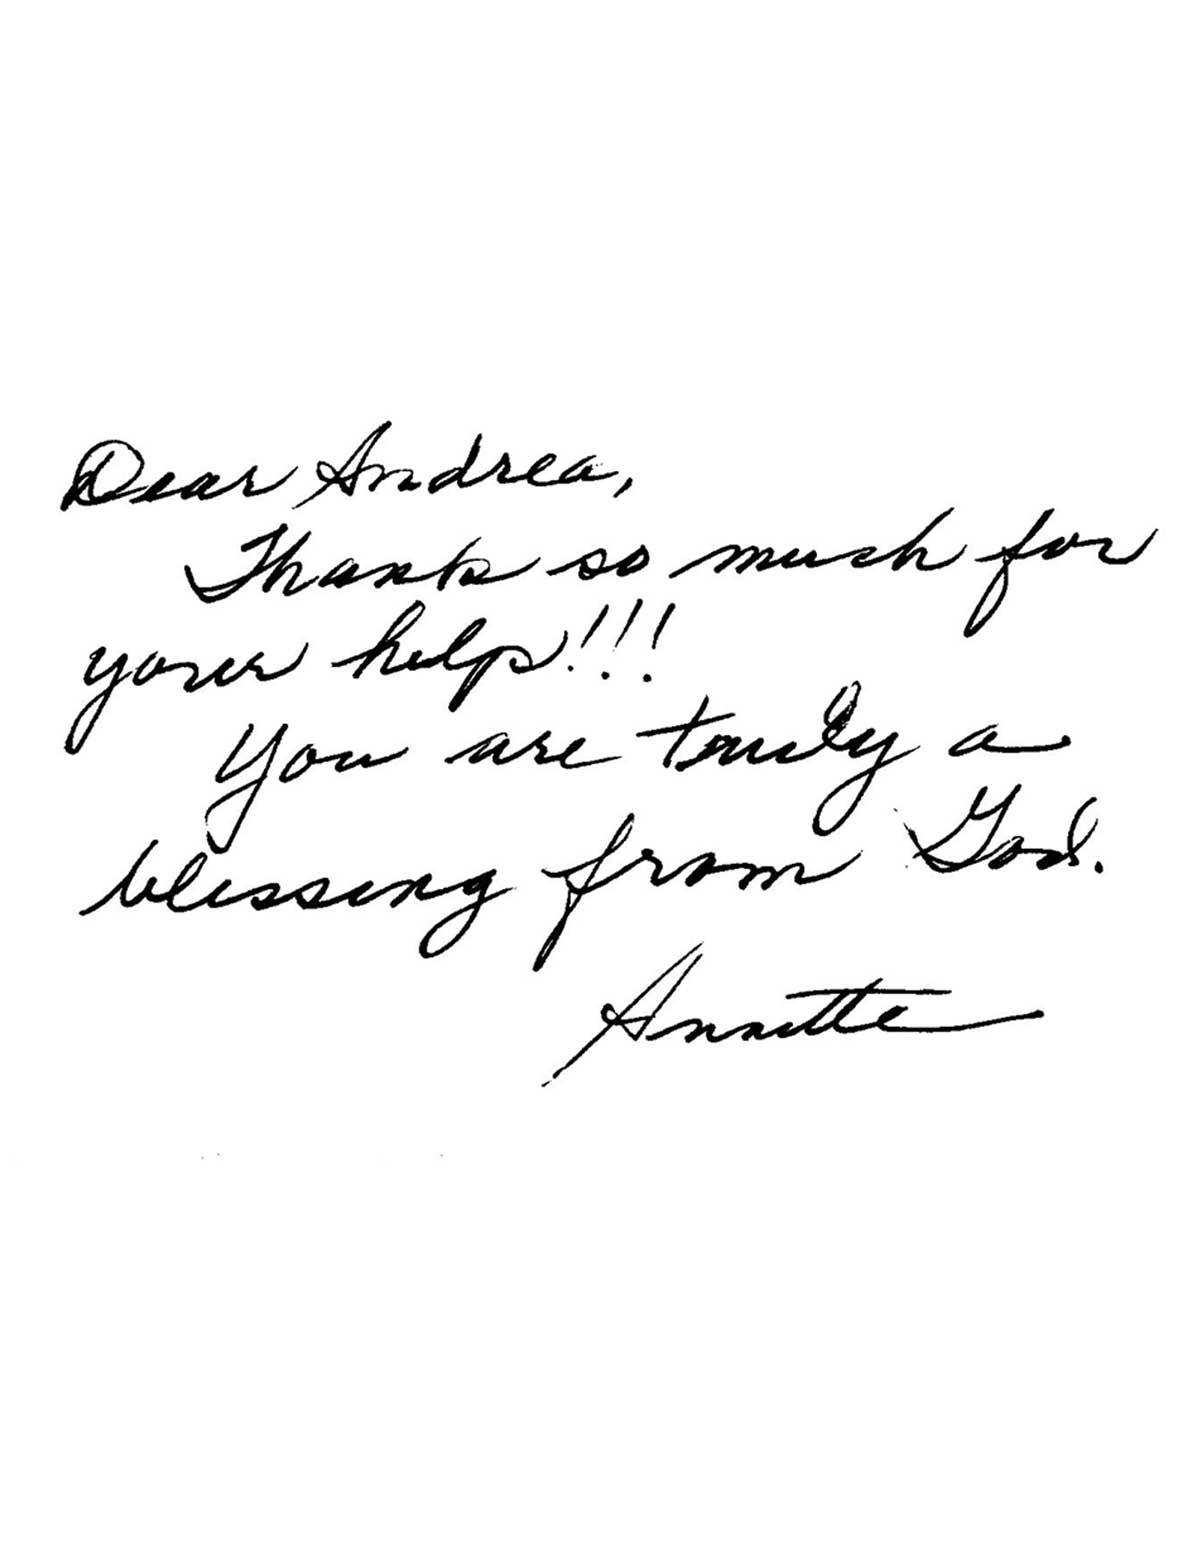 Dear Andrea,
Thanks so much for
your help!!!
You are truly a
blessing from God.
Annette